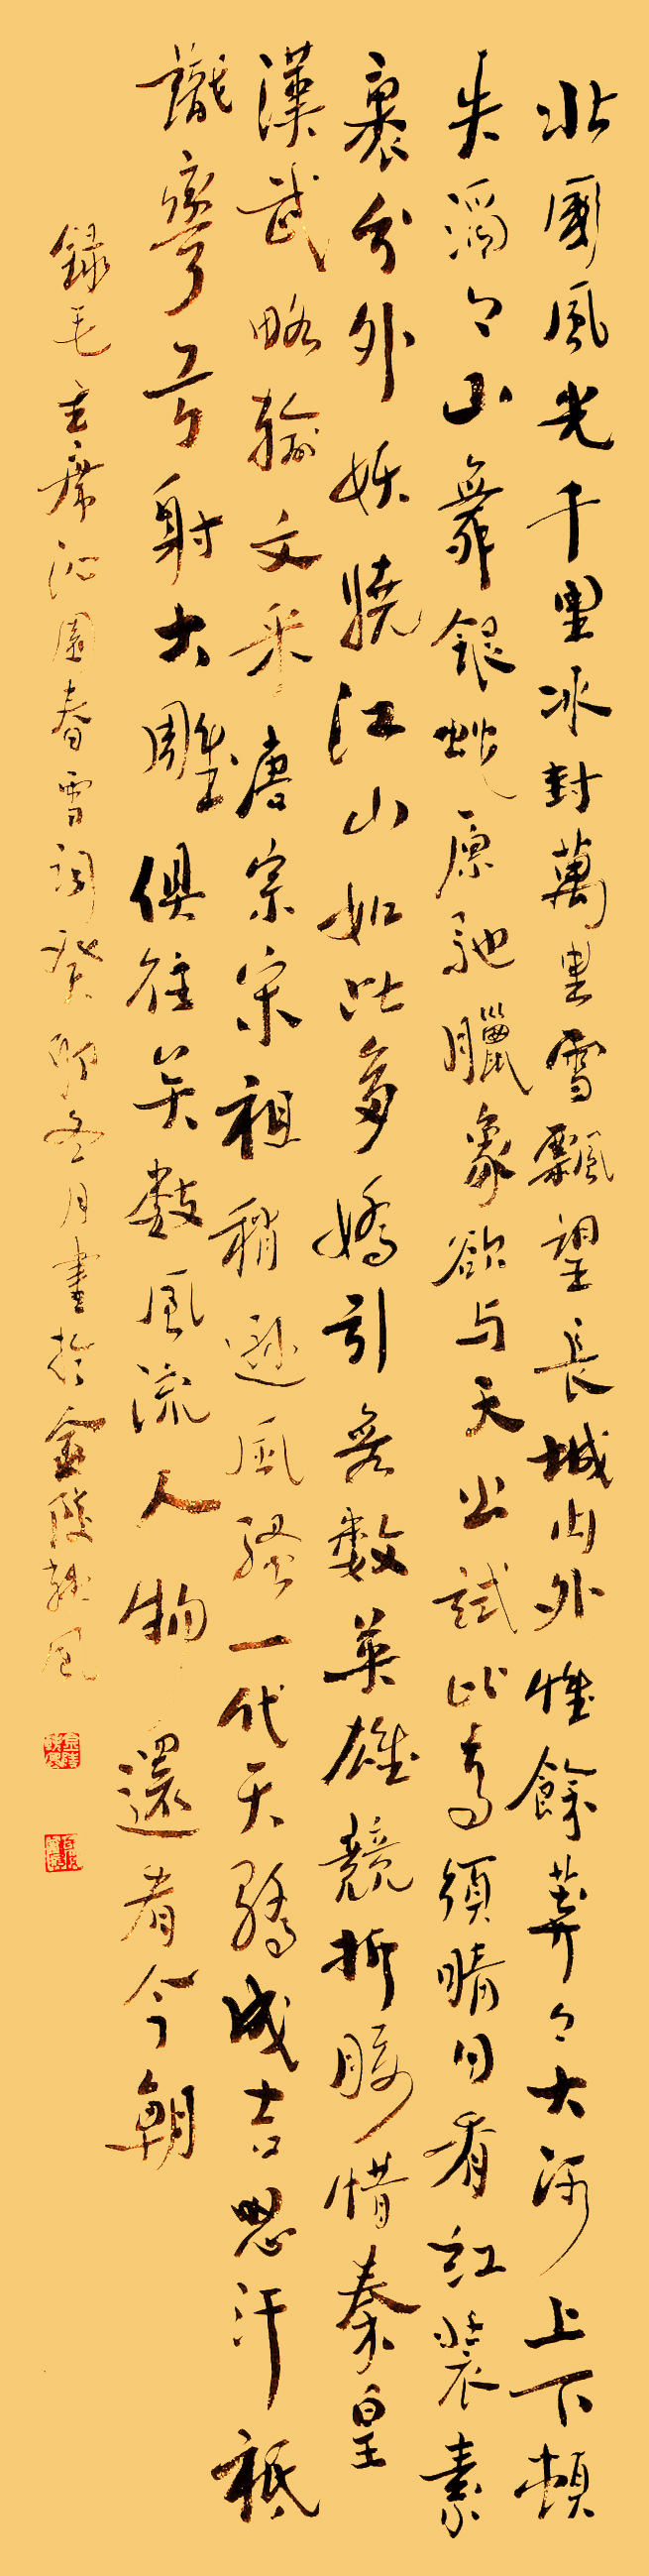 北國風光千里冰封萬里雪飄望長城內外惟餘莽々大河上下頓
失滔々山舞銀蛇原馳臘象欲与天公試比高須晴日看紅裝素
裹分外妖嬈江山如此多嬌引無數英雄競折腰惜秦皇
漢武略輸文采唐宗宋祖稍遜風騷一代天驕成吉思汗祗
識彎弓射大雕俱往矣數風流人物還看今朝
錄毛主席沁園春雪詞癸卯冬月書於金陵韓風